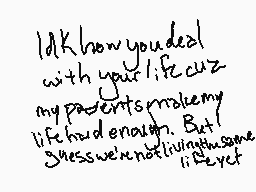 IdK how you deal
with your life cuz
my parents make my
life hard enough. But I
guess we're not living the same
life yet